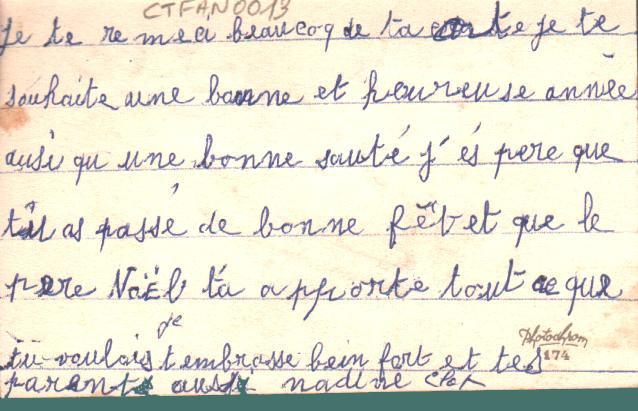 CTFAN0013
Je te remeci beaucoq de ta carte je te
souhaite une bonne et heureuse année
ausi qu une bonne sauté j'éspere que
tu as passé de bonne fêt et que le
pere Noël t'a apporte tout ce que
tu voulais je t'embrasse bein fort et tes
parents aussi nadine
Photochrom
174